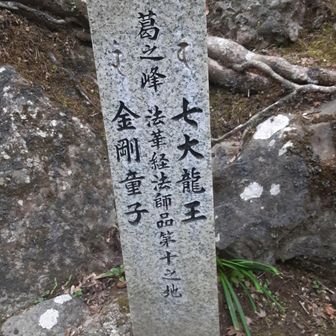 七大龍王
葛之峰 法華経法師品第十之地
金剛童子